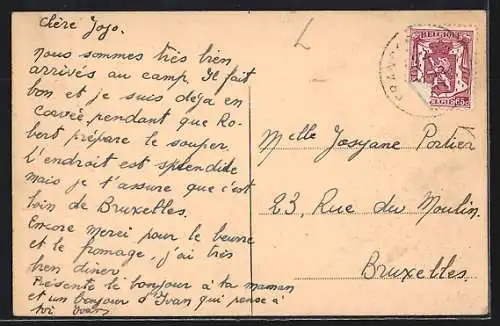 Chère Jojo.
Nous sommes très bien
arrivés au camp. Il fait
bon et je suis déja en
corvée, pendant que Ro-
bert prépare le souper.
L'endroit est splendide
mais je t'assure que c'est
loin de Bruxelles.
Encore merci pour le beurre
et le fromage, j'ai très
bien diner.
Présente le bonjour à ta maman
et un bonjour d'Ivan qui pense à
toi Ivan
L
BELGIQUE
BELGIË
65c
Melle Josyane Portier
23, Rue du Moulin.
Bruxelles.